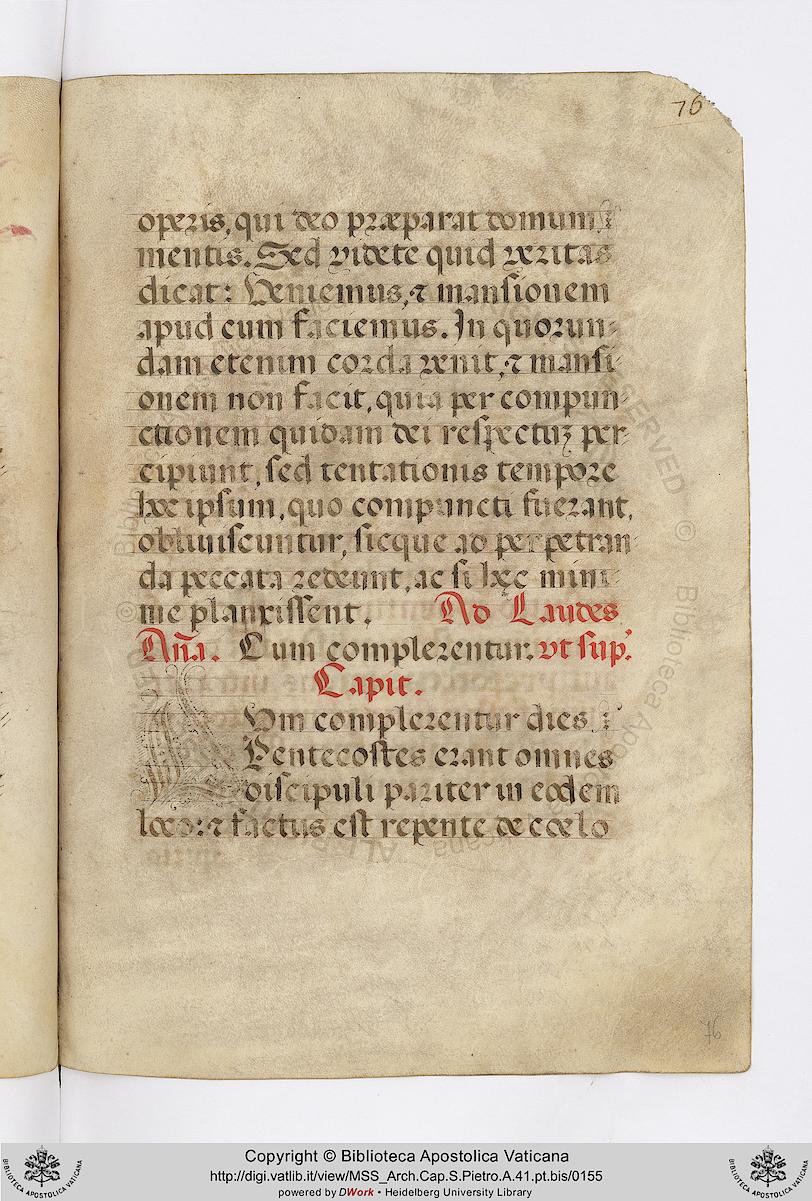 76
operis, qui deo præparat domum
mentis. Sed videte quid veritas
dicat: Veniemus, ⁊ mansionem
apud eum faciemus. In quorun-
dam etenim corda venit, ⁊ mansi-
onem non facit, quia per compun-
ctionem quidam dei respectuȝ per-
cipiunt, sed tentationis tempore
hoc ipsum, quo compuncti fuerant,
obliuiscuntur, sicque ad perpetran-
da peccata redeunt, ac si hæc mini-
me planxissent. Ad Laudes
Aña. Cum complerentur. vt sup.
Capit.
Vm complerentur dies
Pentecostes erant omnes
discipuli pariter in eodem
loco: ⁊ factus est repente de cœlo
76
Copyright © Biblioteca Apostolica Vaticana
http://digi.vatlib.it/view/MSS_Arch.Cap.S.Pietro.A.41.pt.bis/0155
powered by DWork • Heidelberg University Library